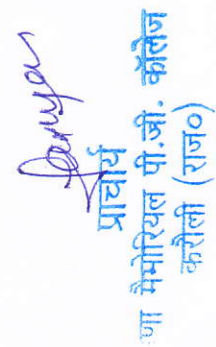 प्राचार्य
णा मैमोरियल पी.जी. कॉलेज
करौली (राज०)